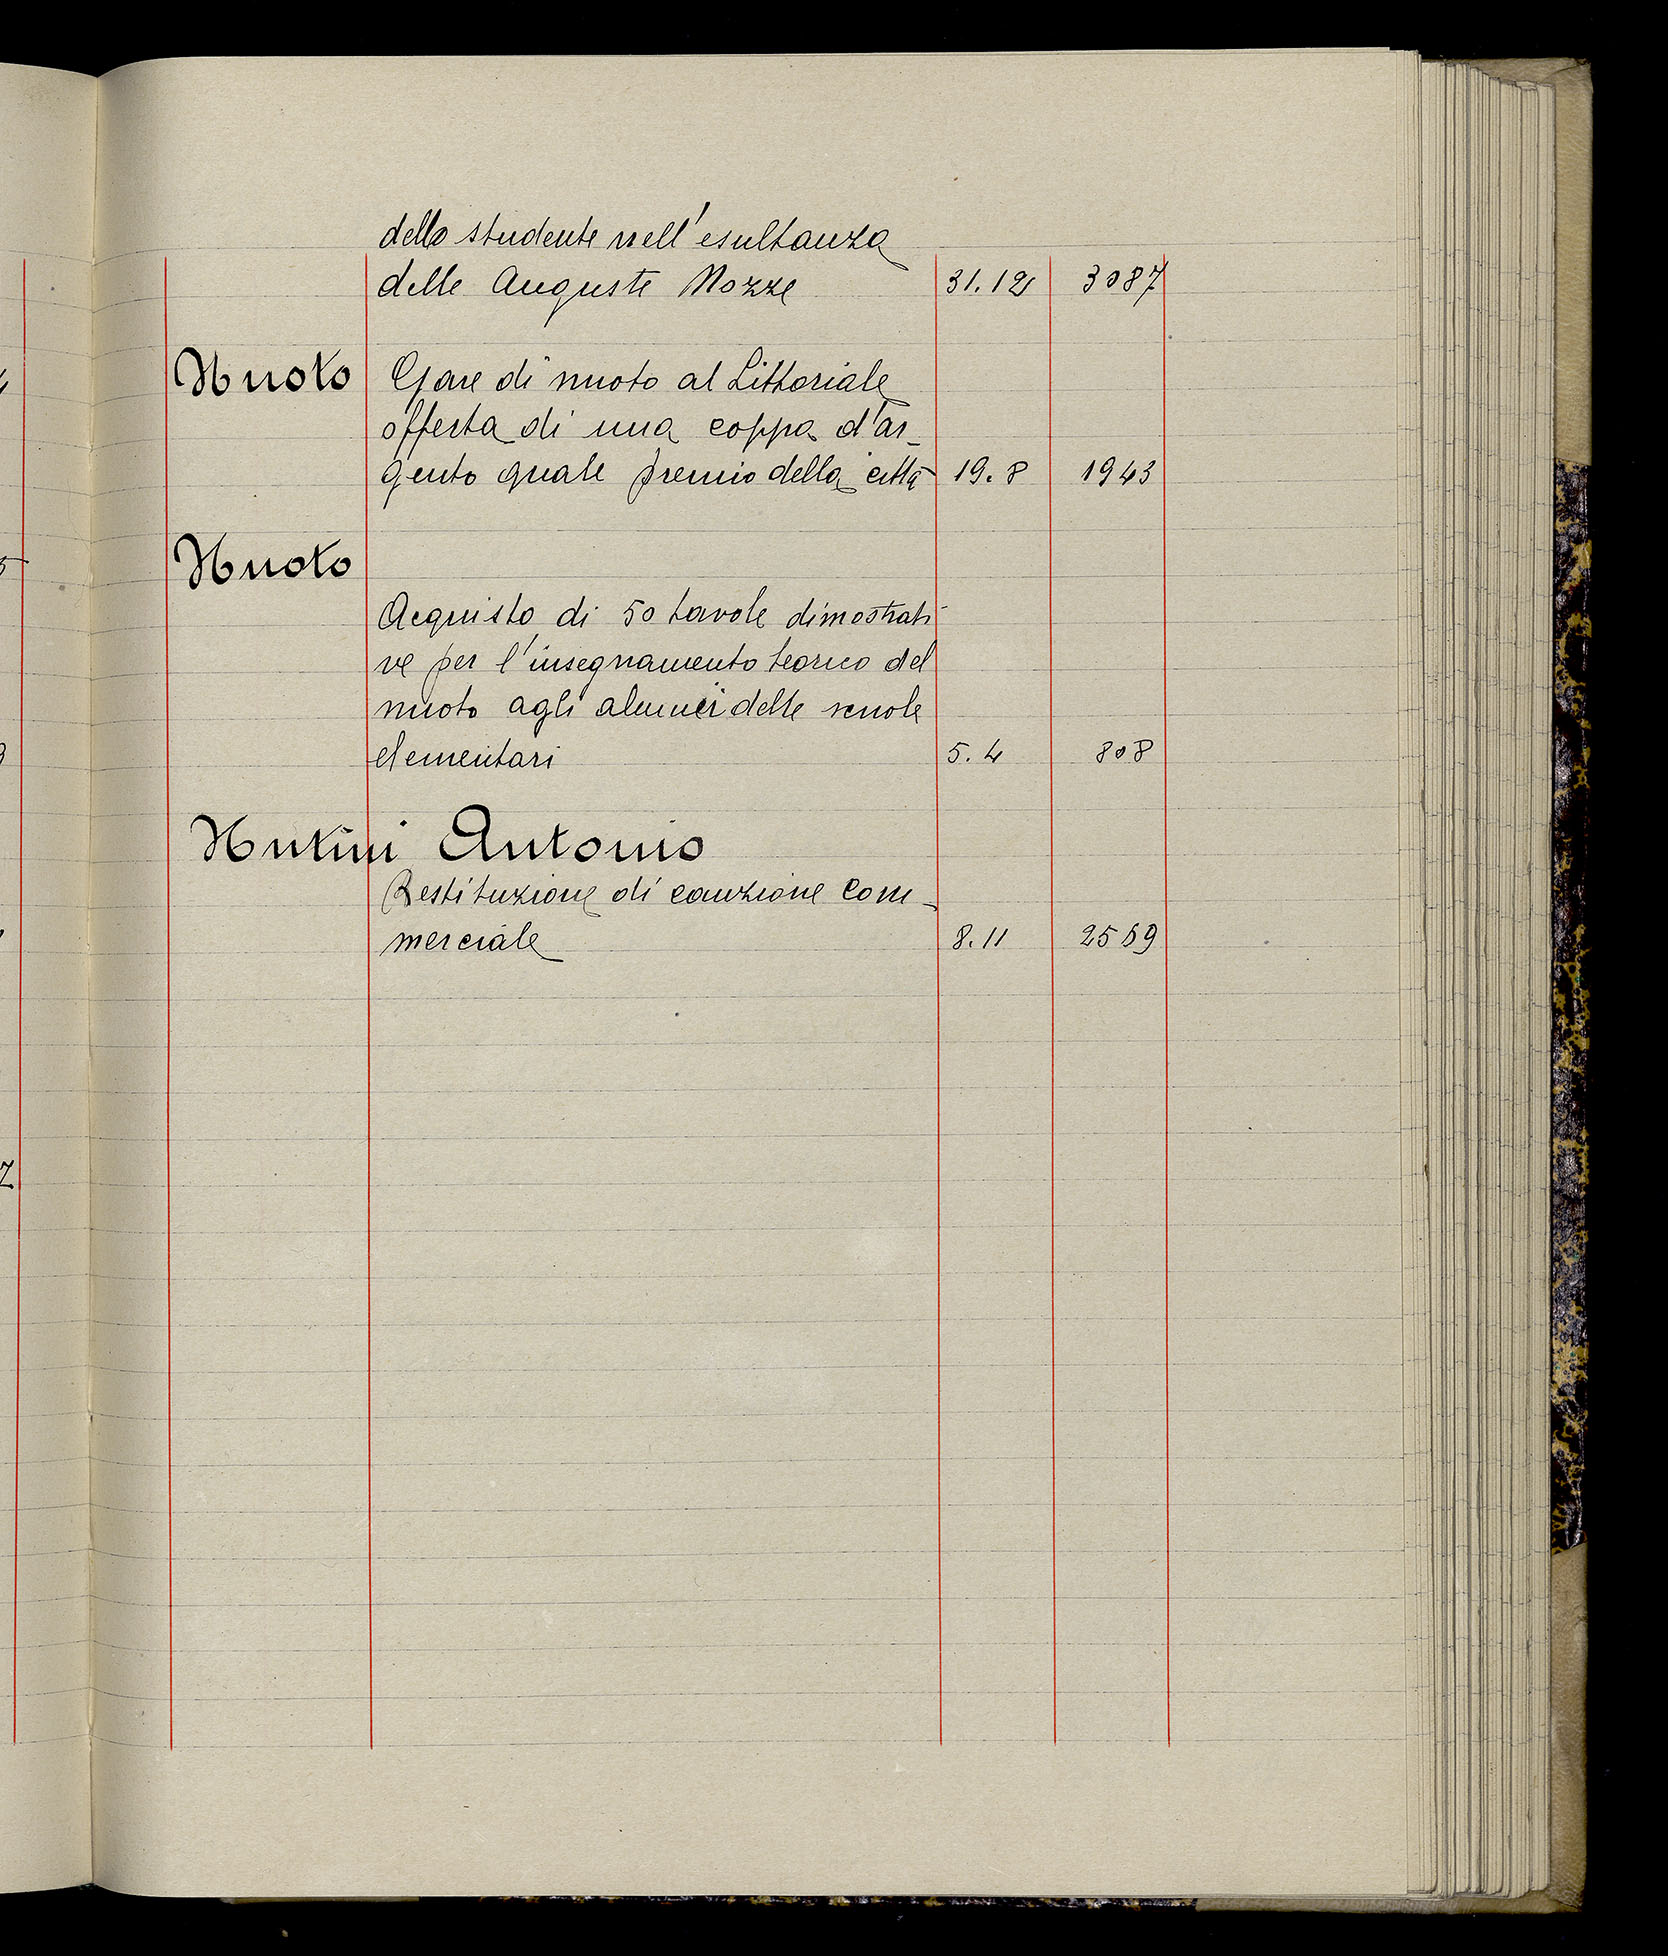 dello studente nell'esultanza
delle Auguste Nozze 31.12 3087
Nuoto Gare di nuoto al Littoriale
offerta di una coppa d'ar-
gento quale premio della città 19.8 1943
Nuoto
Acquisto di 50 tavole dimostrati
ve per l'insegnamento teorico del
nuoto agli alunni delle scuole
elementari 5.4 808
Nutini Antonio
Restituzione di cauzione com-
merciale 8.11 2569